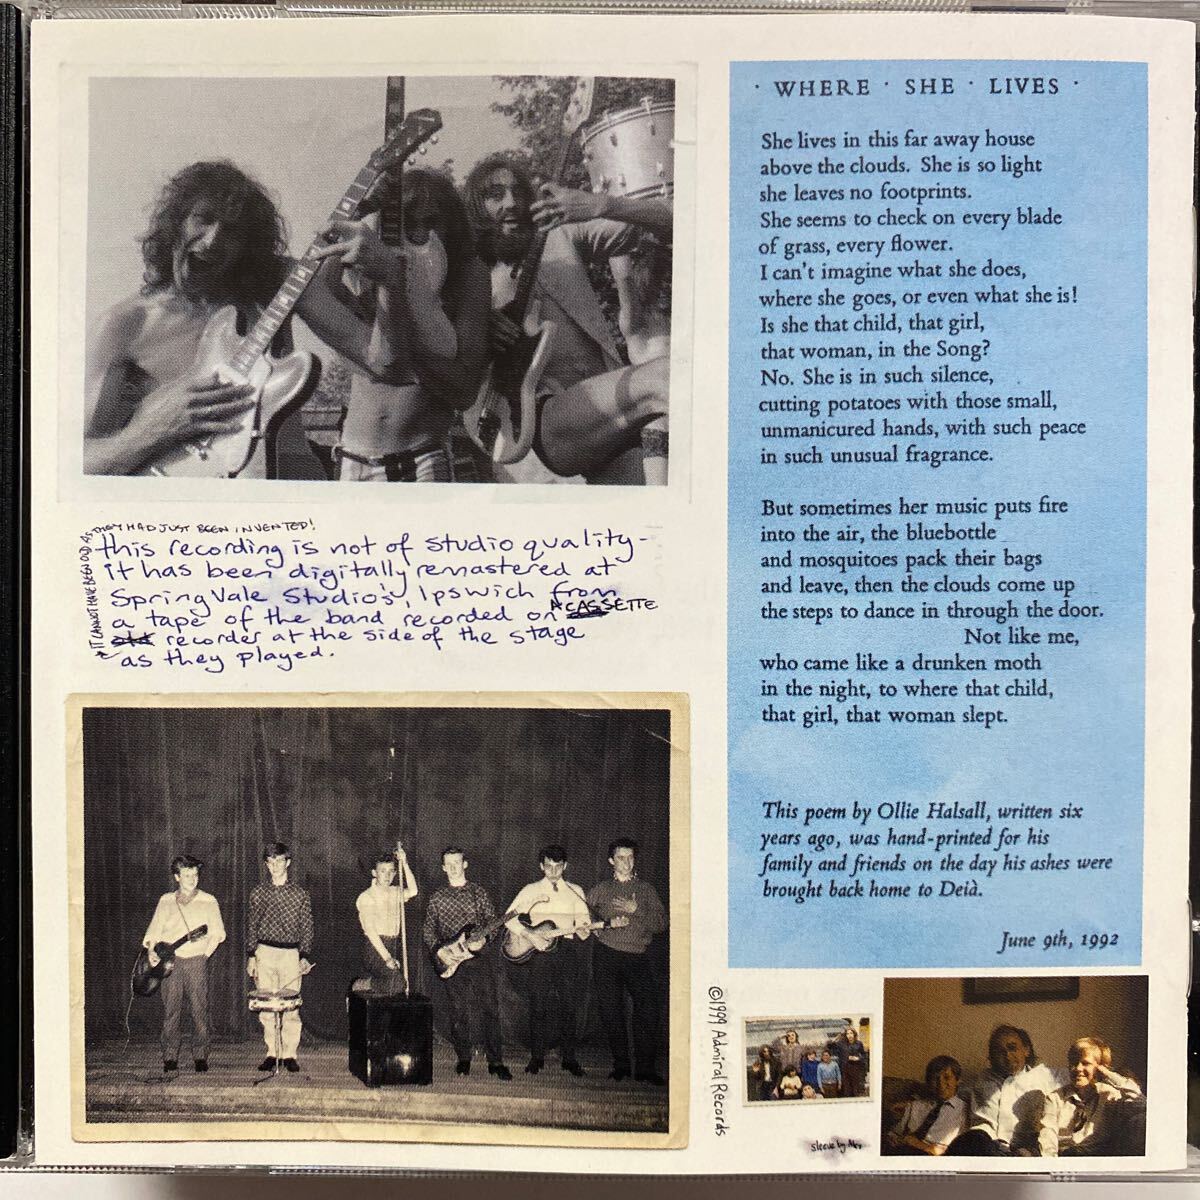 THEY HAD JUST BEEN INVENTED!
this recording is not of studio quality-
it has been digitally remastered at
SpringVale Studio's, Ipswich from
a tape of the band recorded on A CASSETTE
recorder at the side of the stage
as they played.
*IT CANNOT HAVE BEEN OLD AS
· WHERE · SHE · LIVES ·
She lives in this far away house
above the clouds. She is so light
she leaves no footprints.
She seems to check on every blade
of grass, every flower.
I can't imagine what she does,
where she goes, or even what she is!
Is she that child, that girl,
that woman, in the Song?
No. She is in such silence,
cutting potatoes with those small,
unmanicured hands, with such peace
in such unusual fragrance.
But sometimes her music puts fire
into the air, the bluebottle
and mosquitoes pack their bags
and leave, then the clouds come up
the steps to dance in through the door.
Not like me,
who came like a drunken moth
in the night, to where that child,
that girl, that woman slept.
This poem by Ollie Halsall, written six
years ago, was hand-printed for his
family and friends on the day his ashes were
brought back home to Deià.
June 9th, 1992
©1999 Admiral Records
sleeve by